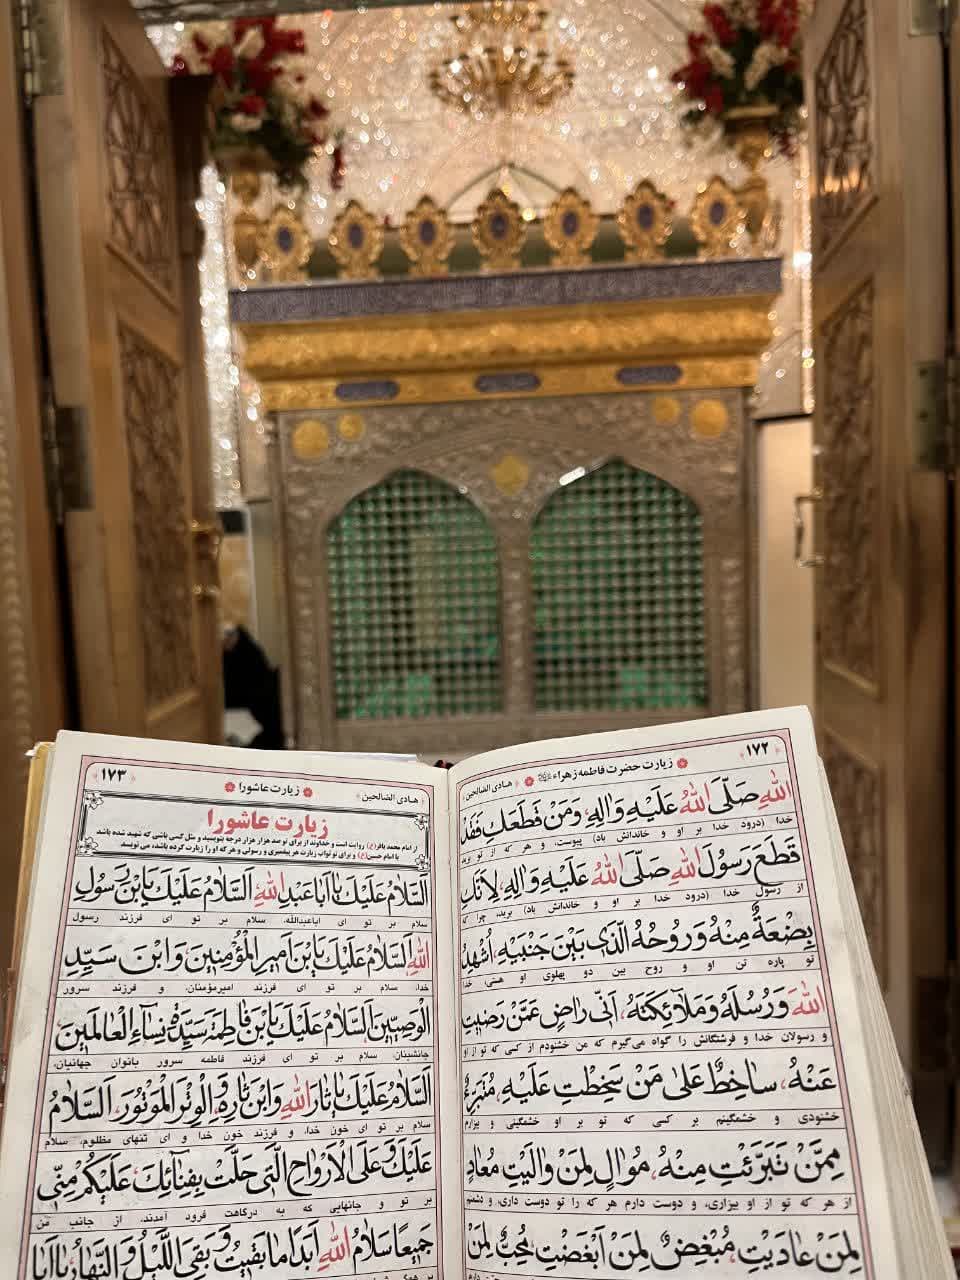 ۱۷۲
زیارت حضرت فاطمه زهراء
هادی الصالحین
اللهِ صَلَّى اللهُ عَلَيْهِ وَالِهِ، وَمَنْ قَطَعَكِ فَقَدْ
خدا (درود خدا بر او و خاندانش باد) پیوست، و هر که از تو برید
قَطَعَ رَسُولَ اللهِ صَلَّى اللهُ عَلَيْهِ وَالِهِ، لِاَنَّكِ
از رسول خدا (درود خدا بر او و خاندانش باد) برید، چرا که
بِضْعَةٌ مِنْهُ وَرُوحُهُ الَّذى بَيْنَ جَنْبَيْهِ، اُشْهِدُ
تو پاره تن او و روح بین دو پهلوی او هستی، خدا
اللهَ وَرُسُلَهُ وَمَلآئِكَتَهُ، اَنّى راضٍ عَمَّنْ رَضيتِ
و رسولان خدا و فرشتگانش را گواه می‌گیرم که من خشنودم از کسی که تو از او
عَنْهُ، ساخِطٌ عَلى مَنْ سَخِطْتِ عَلَيْهِ، مُتَبَرِّءٌ
خشنودی و خشمگینم بر کسی که تو بر او خشمگینی و بیزارم
مِمَّنْ تَبَرَّئْتِ مِنْهُ، مُوالٍ لِمَنْ والَيْتِ، مُعادٍ
از هر که تو از او بیزاری، و دوست دارم هر که را تو دوست داری، و دشمنم
لِمَنْ عادَيْتِ، مُبْغِضٌ لِمَنْ اَبْغَضْتِ، مُحِبٌّ لِمَنْ
۱۷۳
زیارت عاشورا
هادی الصالحین
زیارت عاشورا
از امام محمد باقر(ع) روایت است و خداوند از برای تو صد هزار هزار درجه بنویسد و مثل کسی باشی که شهید شده باشد
با امام حسین(ع) و برای تو ثواب زیارت هر پیغمبری و رسولی و هر که او را زیارت کرده باشد، می نویسد
اَلسَّلامُ عَلَيْكَ يا اَبا عَبْدِ اللهِ، اَلسَّلامُ عَلَيْكَ يَا بْنَ رَسُولِ
سلام بر تو ای اباعبدالله. سلام بر تو ای فرزند رسول
اللهِ، اَلسَّلامُ عَلَيْكَ يَا بْنَ اَميرِ الْمُؤْمِنينَ، وَابْنَ سَيِّدِ
خدا، سلام بر تو ای فرزند امیرمؤمنان، و فرزند سرور
الْوَصِيّينَ، اَلسَّلامُ عَلَيْكَ يَا بْنَ فاطِمَةَ سَيِّدَةِ نِساءِ الْعالَمينَ،
جانشینان، سلام بر تو ای فرزند فاطمه سرور بانوان جهانیان،
اَلسَّلامُ عَلَيْكَ يا ثارَ اللهِ وَابْنَ ثارِهِ، وَالْوِتْرَ الْمَوْتُورَ، اَلسَّلامُ
سلام بر تو ای خون خدا، و فرزند خون خدا و ای تنهای مظلوم، سلام
عَلَيْكَ وَعَلَى الْاَرْواحِ الَّتى حَلَّتْ بِفِنآئِكَ، عَلَيْكُمْ مِنّى
بر تو و جانهایی که به درگاهت فرود آمدند، از جانب من
جَميعاً سَلامُ اللهِ اَبَداً ما بَقيتُ وَبَقِىَ اللَّيْلُ وَالنَّهارُ، يا اَبا